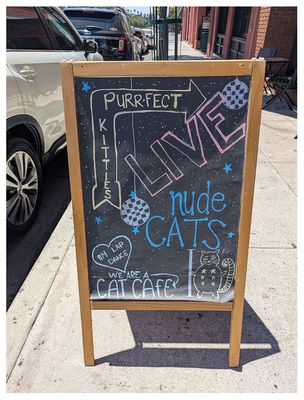 PURR-FECT
KITTIES
LIVE
nude
CATS
$14 LAP
DANCE
WE ARE A
CAT CAFE'